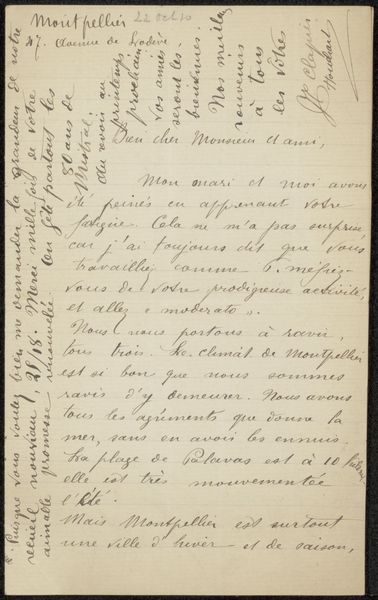 Montpellier 22 oct 10
47. Avenue de Lodève
Bien cher Monsieur et ami,
Mon mari et moi avons
été peinés en apprenant votre
fatigue. Cela ne m'a pas surprise
car j'ai toujours dit que vous
travailliez comme 6. méfiez-
vous de votre prodigieuse activité,
et allez « moderato ».
Nous nous portons à ravir,
tous trois. Le climat de Montpellier
est si bon que nous sommes
ravis d'y demeurer. Nous avons
tous les agréments que donne la
mer, sans en avoir les ennuis.
La plage de Palavas est à 10
elle est très mouvementée
l'été.
Mais Montpellier est surtout
une ville d'hiver et de saison,
Puisque vous voulez bien me demander la grandeur de votre
recueil nouveau, 28/18. Merci mille fois de votre
aimable promesse renouvelée. On fête partout les
80 ans de
Mistral.
au revoir au
printemps
prochain
vos amies
seront les
bienvenues.
Nos meilleurs
souvenirs
à tous
les vôtres